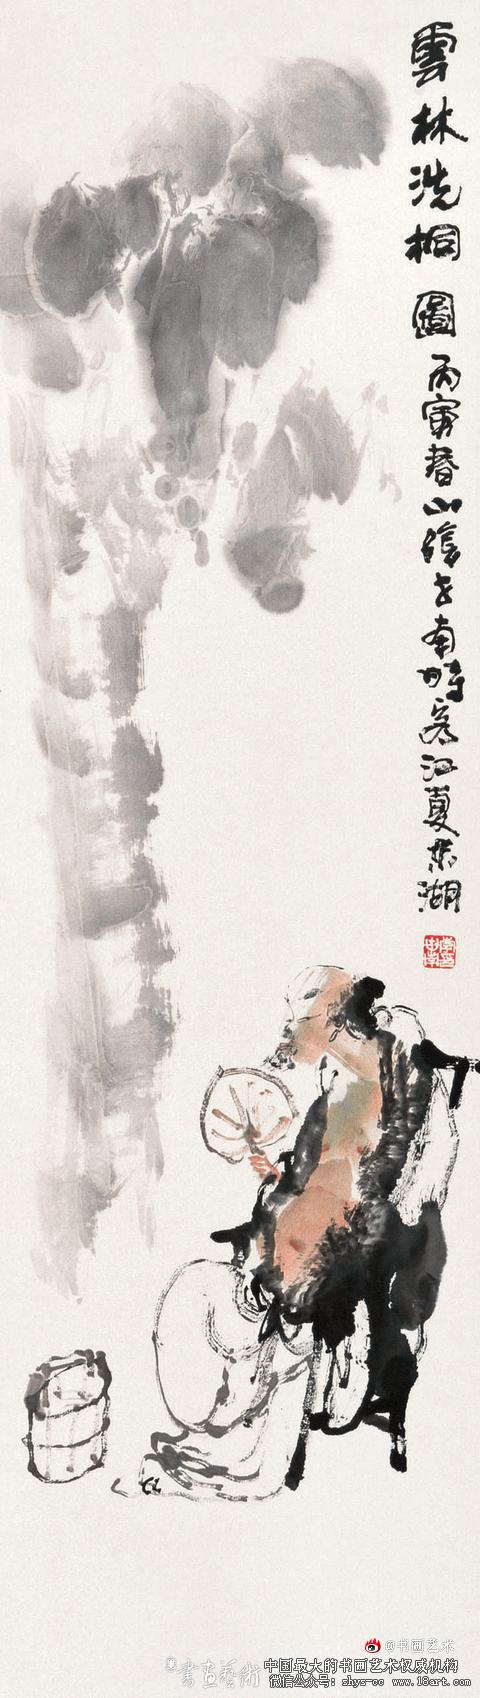 雲林洗桐圖丙寅春山陰世南時客江夏東湖
@书画艺术
書画藝術
中国最大的书画艺术权威机构
微信公众号: shys-cc www.18art.com